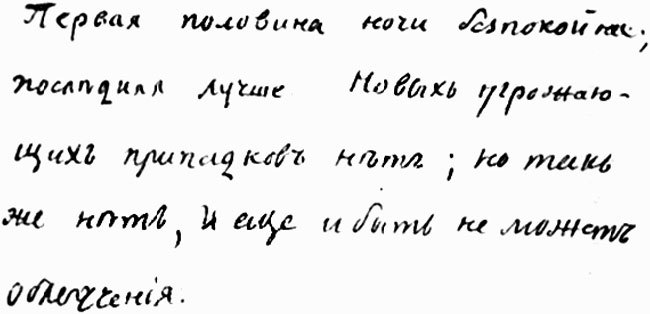 Первая половина ночи безпокойная;
последняя лучше Новыхъ угрожаю-
щихъ припадковъ нѣтъ; но такъ
же нѣтъ, и еще и быть не можетъ
облегченія.